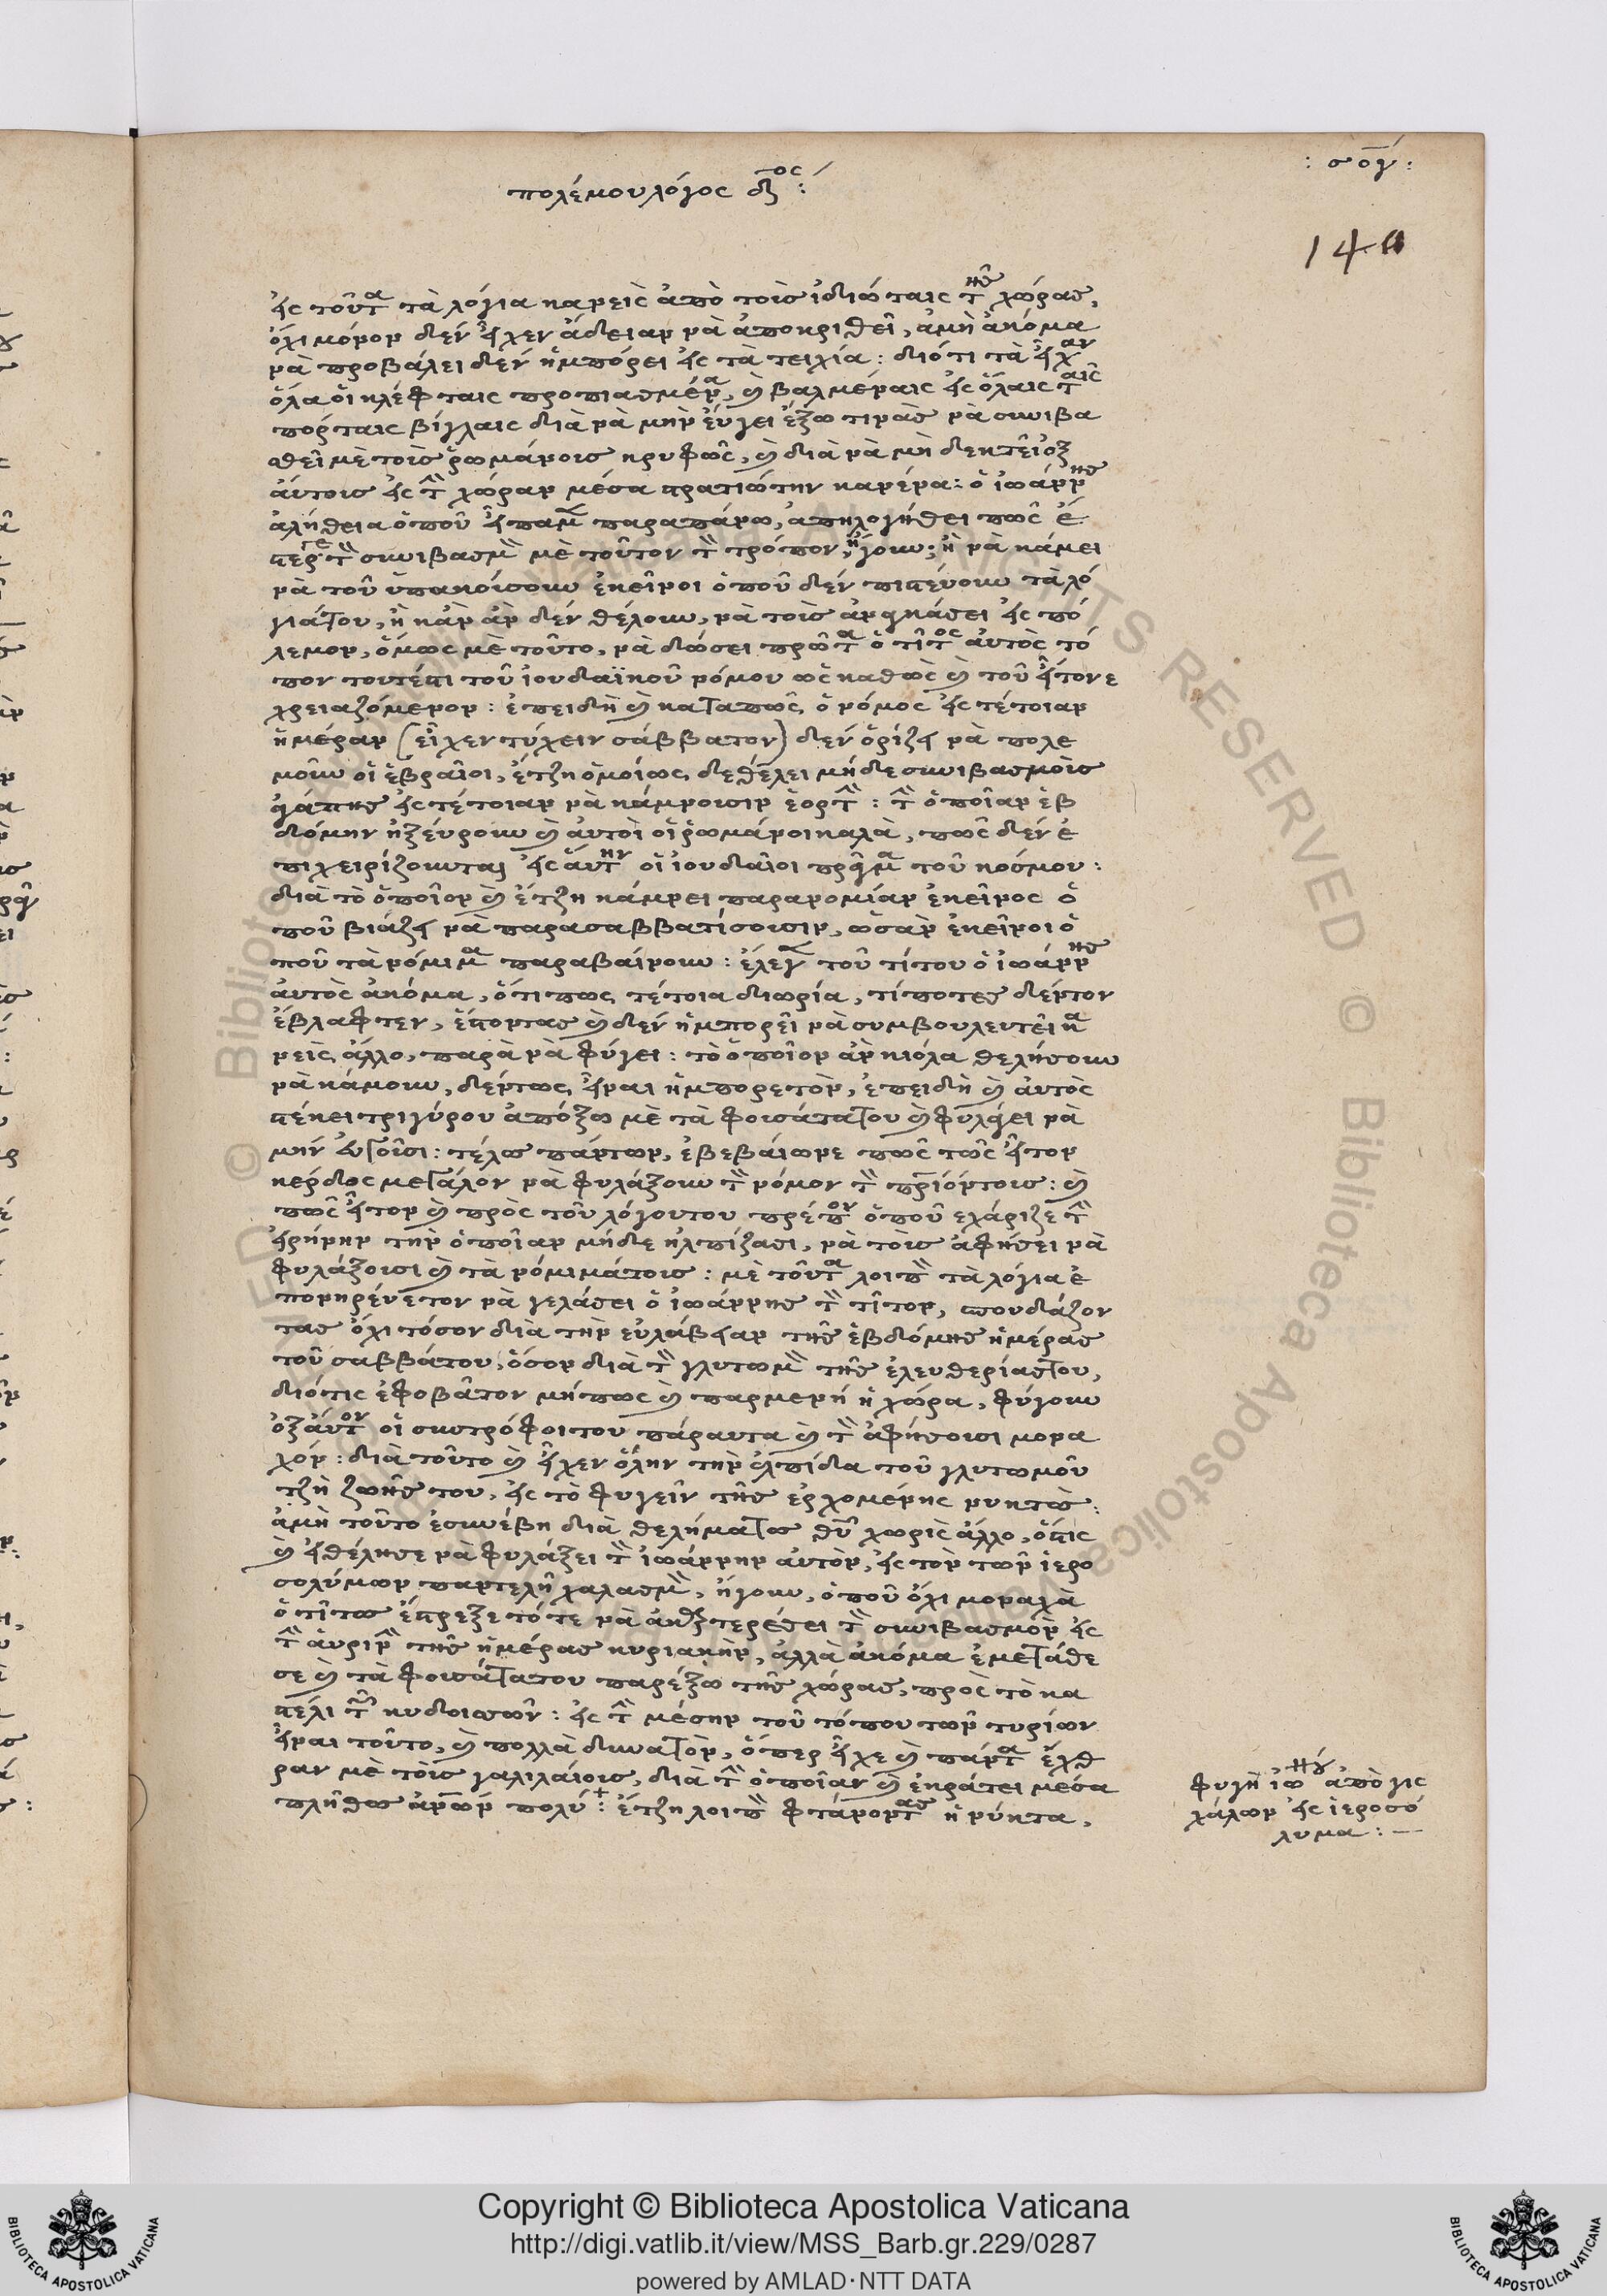 : σογ :
πολέμου λόγος δος :
140
εἰς τοῦτα τὰ λόγια κανεὶς ἀπὸ τοὶς ἰδιώταις τῆς χώρας,
ὄχι μόνον δὲν εἶχεν ἄδειαν νὰ ἀποκριθεῖ, ἀμὴ ἀκόμα
νὰ προβάλει δὲν ἠμπόρει εἰς τὰ τειχία : διότι τὰ εἶχαν
ὅλα οἱ κλέφταις προπιασμένα, καὶ βαλμέναις εἰς ὅλαις ταῖς
πόρταις βίγλαις διὰ νὰ μὴν εὔγει ἔξω τινὰς νὰ συνιβα
σθεῖ μὲ τοὶς ῥωμάνους κρυφῶς, καὶ διὰ νὰ μὴ δεκτεῖ ὀξ
αὐτοὺς εἰς τὴν χώραν μέσα στρατιώτην κανένα : ὁ ἰωάννης
ἀλήθεια ὁποῦ εἴπαμεν παραπάνω, ἀπηλογήθει πῶς ἔ
στεργε τὸν συνιβασμὸν μὲ τοῦτον τὸν τρόπον, ἤγουν ; ἢ νὰ κάμει
νὰ τοῦ ὑπακοίσουν ἐκεῖνοι ὁποῦ δὲν πιστεύουν τὰ λό
γιάτου, ἢ κἂν ἂν δὲν θέλουν, νὰ τοὶς ἀναγκάσει εἰς πό
λεμον, ὅμως μὲ τοῦτο, νὰ δώσει πρῶτα ὁ τῖτος αὐτὸς τό
πον τουτέστι τοῦ ἰουδαϊκοῦ νόμου ὡς καθὼς καὶ τοῦ εἴτονε
χρειαζόμενον : ἐπειδὴ καὶ καταπῶς ὁ νόμος εἰς τέτοιαν
ἡμέραν (εἶχεν τύχειν σάββατον) δὲν ὁρίζει νὰ πολε
μοῦν οἱ ἑβραῖοι, ἔτζη ὁμοίως δεθέλει μήδε συνιβασμοὶς
ἀγάπης εἰς τέτοιαν νὰ κάμνουσιν ἑορτὴν : τὴν ὁποῖαν ἑβ
δόμην ἠξεύρουν καὶ αὐτοὶ οἱ ῥωμάνοι καλὰ, πῶς δὲν ἐ
πιχειρίζουνται εἰς αὐτὴν οἱ ἰουδαῖοι πρᾶγμα τοῦ κόσμου :
διὰ τὸ ὁποῖον καὶ ἔτζη κάμνει παρανομίαν ἐκεῖνος ὁ
ποῦ βιάζει νὰ παρασαββατίσουσιν, ὡσὰν ἐκεῖνοι ὁ
ποῦ τὰ νόμιμα παραβαίνουν : ἔλεγεν τοῦ τίτου ὁ ἰωάννης
αὐτὸς ἀκόμα, ὅτι πως τέτοια διωρία, τίποτες δέντον
ἔβλαφτεν, ἔστοντας καὶ δὲν ἠμπορεῖ νὰ συμβουλευτεῖ κα
νεὶς ἄλλο, παρὰ νὰ φύγει : τὸ ὁποῖον ἂν κιόλα θελήσουν
νὰ κάμουν, δέντως εἶναι ἠμπορετὸν, ἐπειδὴ καὶ αὐτὸς
στέκει τριγύρου ἀπόξω μὲ τὰ φουσάτατου καὶ φυλάγει νὰ
μὴν εὐγοῦσι : τέλος πάντων, ἐβεβαίωνε πῶς τῶς εἶτον
κέρδος μεγάλον νὰ φυλάξουν τὸν νόμον τὸν πατριόντους : καὶ
πῶς εἶτον καὶ πρὸς τοῦ λόγουτου πρέπον ὁποῦ ἐχάριζε τὴν
εἰρήνην τὴν ὁποῖαν μήδε ἠλπίζασι, νὰ τοὶς ἀφήσει νὰ
φυλάξουσι καὶ τὰ νόμιμάτους : μὲ τοῦτα λοιπὸν τὰ λόγια ἐ
πονηρεύετον νὰ γελάσει ὁ ἰωάννης τὸν τῖτον, σπουδάζον
τας ὄχι τόσον διὰ τὴν εὐλάβειαν τῆς ἑβδόμης ἡμέρας
τοῦ σαββάτου, ὅσον διὰ τὸν γλυτωμὸν τῆς ἐλευθερίαςτου,
διότις ἐφοβᾶτον μήπως καὶ παρμενή ἡ χώρα, φύγουν
ὀξαὐτὸν οἱ συντρόφοιτου πάραυτα καὶ τὸν ἀφήσουσι μονα
χόν : διὰ τοῦτο καὶ εἶχεν ὅλην τὴν ἐλπίδα τοῦ γλυτωμοῦ
τζῆ ζωῆς του, εἰς τὸ φυγεῖν τῆς ἐρχομένης νυκτὸς :
ἀμὴ τοῦτο ἐσυνέβη διὰ θελήματος θεοῦ χωρὶς ἄλλο, ὅστις
καὶ εἰθέλησε νὰ φυλάξει τὸν ἰωάννην αὐτὸν, εἰς τὸν τῶν ἱερο
σολύμων παντελῆ χαλασμὸν, ἤγουν, ὁποῦ ὄχι μοναχὰ
ὁ τῖτος ἔστρεξε τότε νὰ ἀκαρτερέσει τὸν συνιβασμὸν εἰς
τὴν αὐρινὴν τῆς ἡμέρας κυριακὴν, ἀλλὰ ἀκόμα ἐμετάθε
σε καὶ τὰ φουσάτατου παρέξω τῆς χώρας, πρὸς τὸ κα
στέλι τῶν κυδοισσῶν : εἰς τὴν μέσην τοῦ τόπου τῶν τυρίων
εἶναι τοῦτο, καὶ πολλὰ δυνατὸν, ὅπερ εἶχε καὶ πάντα ἔχθ
ραν μὲ τοὶς γαλιλαίους, διὰ τὴν ὁποῖαν καὶ ἐκράτει μέσα
πλῆθος ἀνθρώπων πολύ + : ἔτζη λοιπὸν φτάνοντας ἡ νύκτα,
φυγὴ ἰωάννου ἀπὸ γις
χάλων εἰς ἱεροσό
λυμα : —
Copyright © Biblioteca Apostolica Vaticana
http://digi.vatlib.it/view/MSS_Barb.gr.229/0287
powered by AMLAD·NTT DATA
BIBLIOTECA APOSTOLICA VATICANA
BIBLIOTECA APOSTOLICA VATICANA